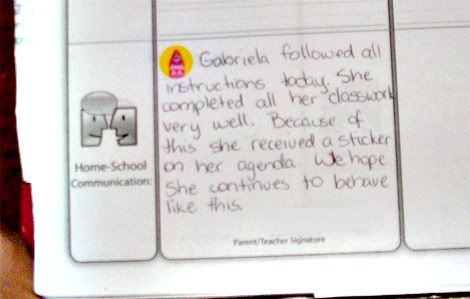 Gabriela followed all
instructions today. She
completed all her classwork
very well. Because of
this she received a sticker
on her agenda. We hope
she continues to behave
like this.
Home-School
Communication:
Parent/Teacher Signature